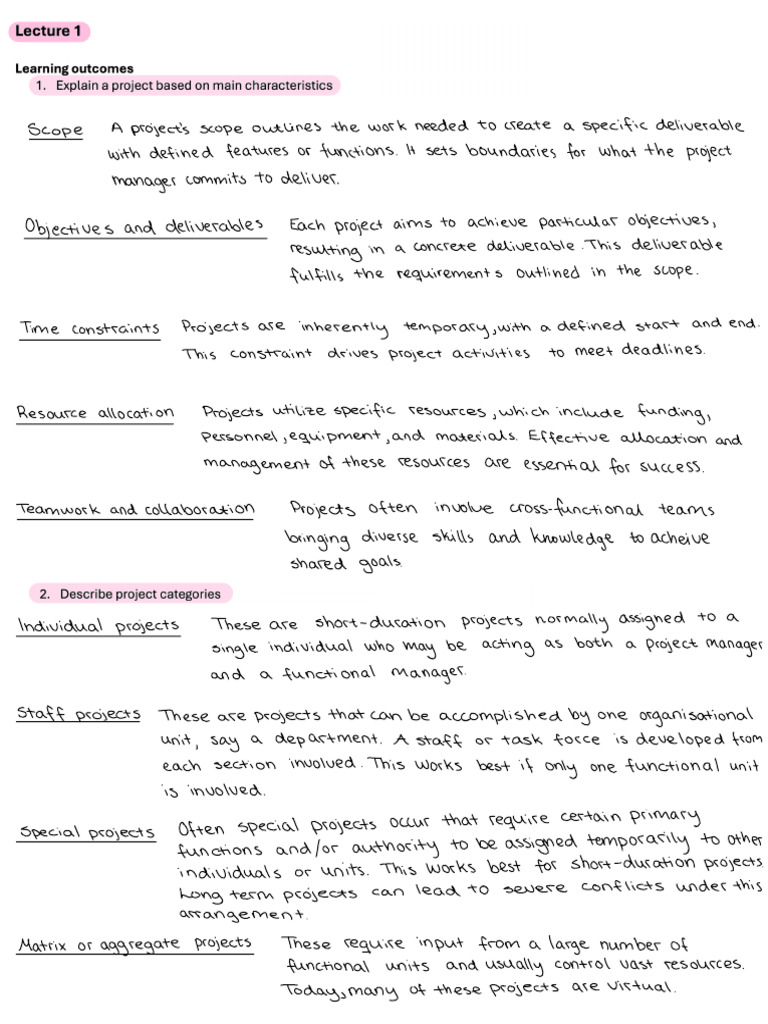 Lecture 1
Learning outcomes
1. Explain a project based on main characteristics
Scope A project's scope outlines the work needed to create a specific deliverable
with defined features or functions. It sets boundaries for what the project
manager commits to deliver.
Objectives and deliverables Each project aims to achieve particular objectives,
resulting in a concrete deliverable. This deliverable
fulfills the requirements outlined in the scope.
Time constraints Projects are inherently temporary, with a defined start and end.
This constraint drives project activities to meet deadlines.
Resource allocation Projects utilize specific resources, which include funding,
personnel, equipment, and materials. Effective allocation and
management of these resources are essential for success.
Teamwork and collaboration Projects often involve cross-functional teams
bringing diverse skills and knowledge to acheive
shared goals.
2. Describe project categories
Individual projects These are short-duration projects normally assigned to a
single individual who may be acting as both a project manager
and a functional manager.
Staff projects These are projects that can be accomplished by one organisational
unit, say a department. A staff or task force is developed from
each section involved. This works best if only one functional unit
is involved.
Special projects Often special projects occur that require certain primary
functions and/or authority to be assigned temporarily to other
individuals or units. This works best for short-duration projects.
Long term projects can lead to severe conflicts under this
arrangement.
Matrix or aggregate projects These require input from a large number of
functional units and usually control vast resources.
Today, many of these projects are virtual.